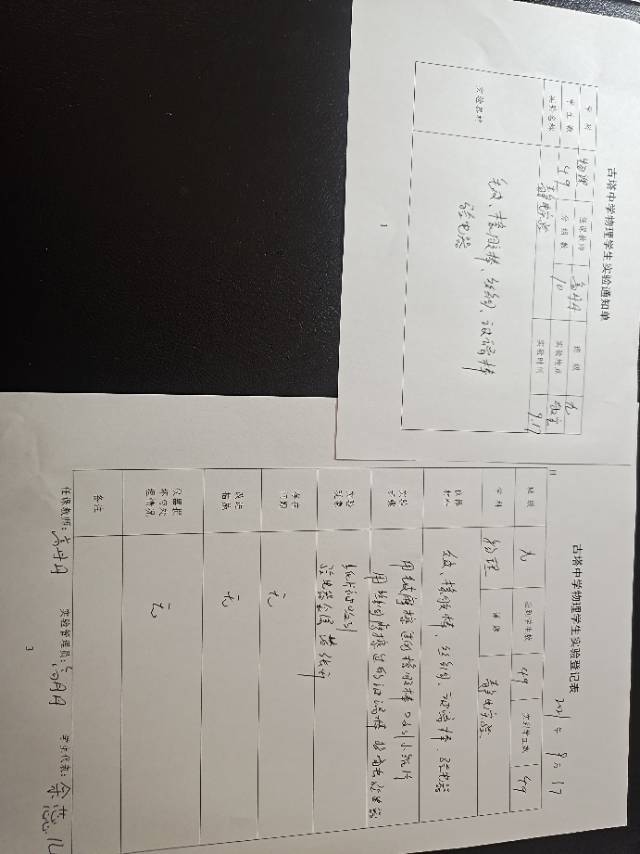 古塔中学物理学生实验通知单
学科 物理 任课教师 班级 九
学生数 49 分组数 10 实验地点 教室
实验名称 静电实验 实验时间 9.17
实验器材
毛皮、橡胶棒、丝绸、玻璃棒
验电器
1
古塔中学物理学生实验登记表
2021年9月17日
班级 九 应到学生数 49 实到学生数 49
学科 物理 课题 静电实验
仪器材料 毛皮、橡胶棒、丝绸、玻璃棒、验电器
实验过程
用毛皮摩擦过的橡胶棒吸引小纸片
用丝绸摩擦过的玻璃棒
实验现象
纸片被吸引
验电器金属箔张开
无
改进措施 无
仪器损坏与处理情况 无
备注
任课教师: 实验管理员: 学生代表:
3